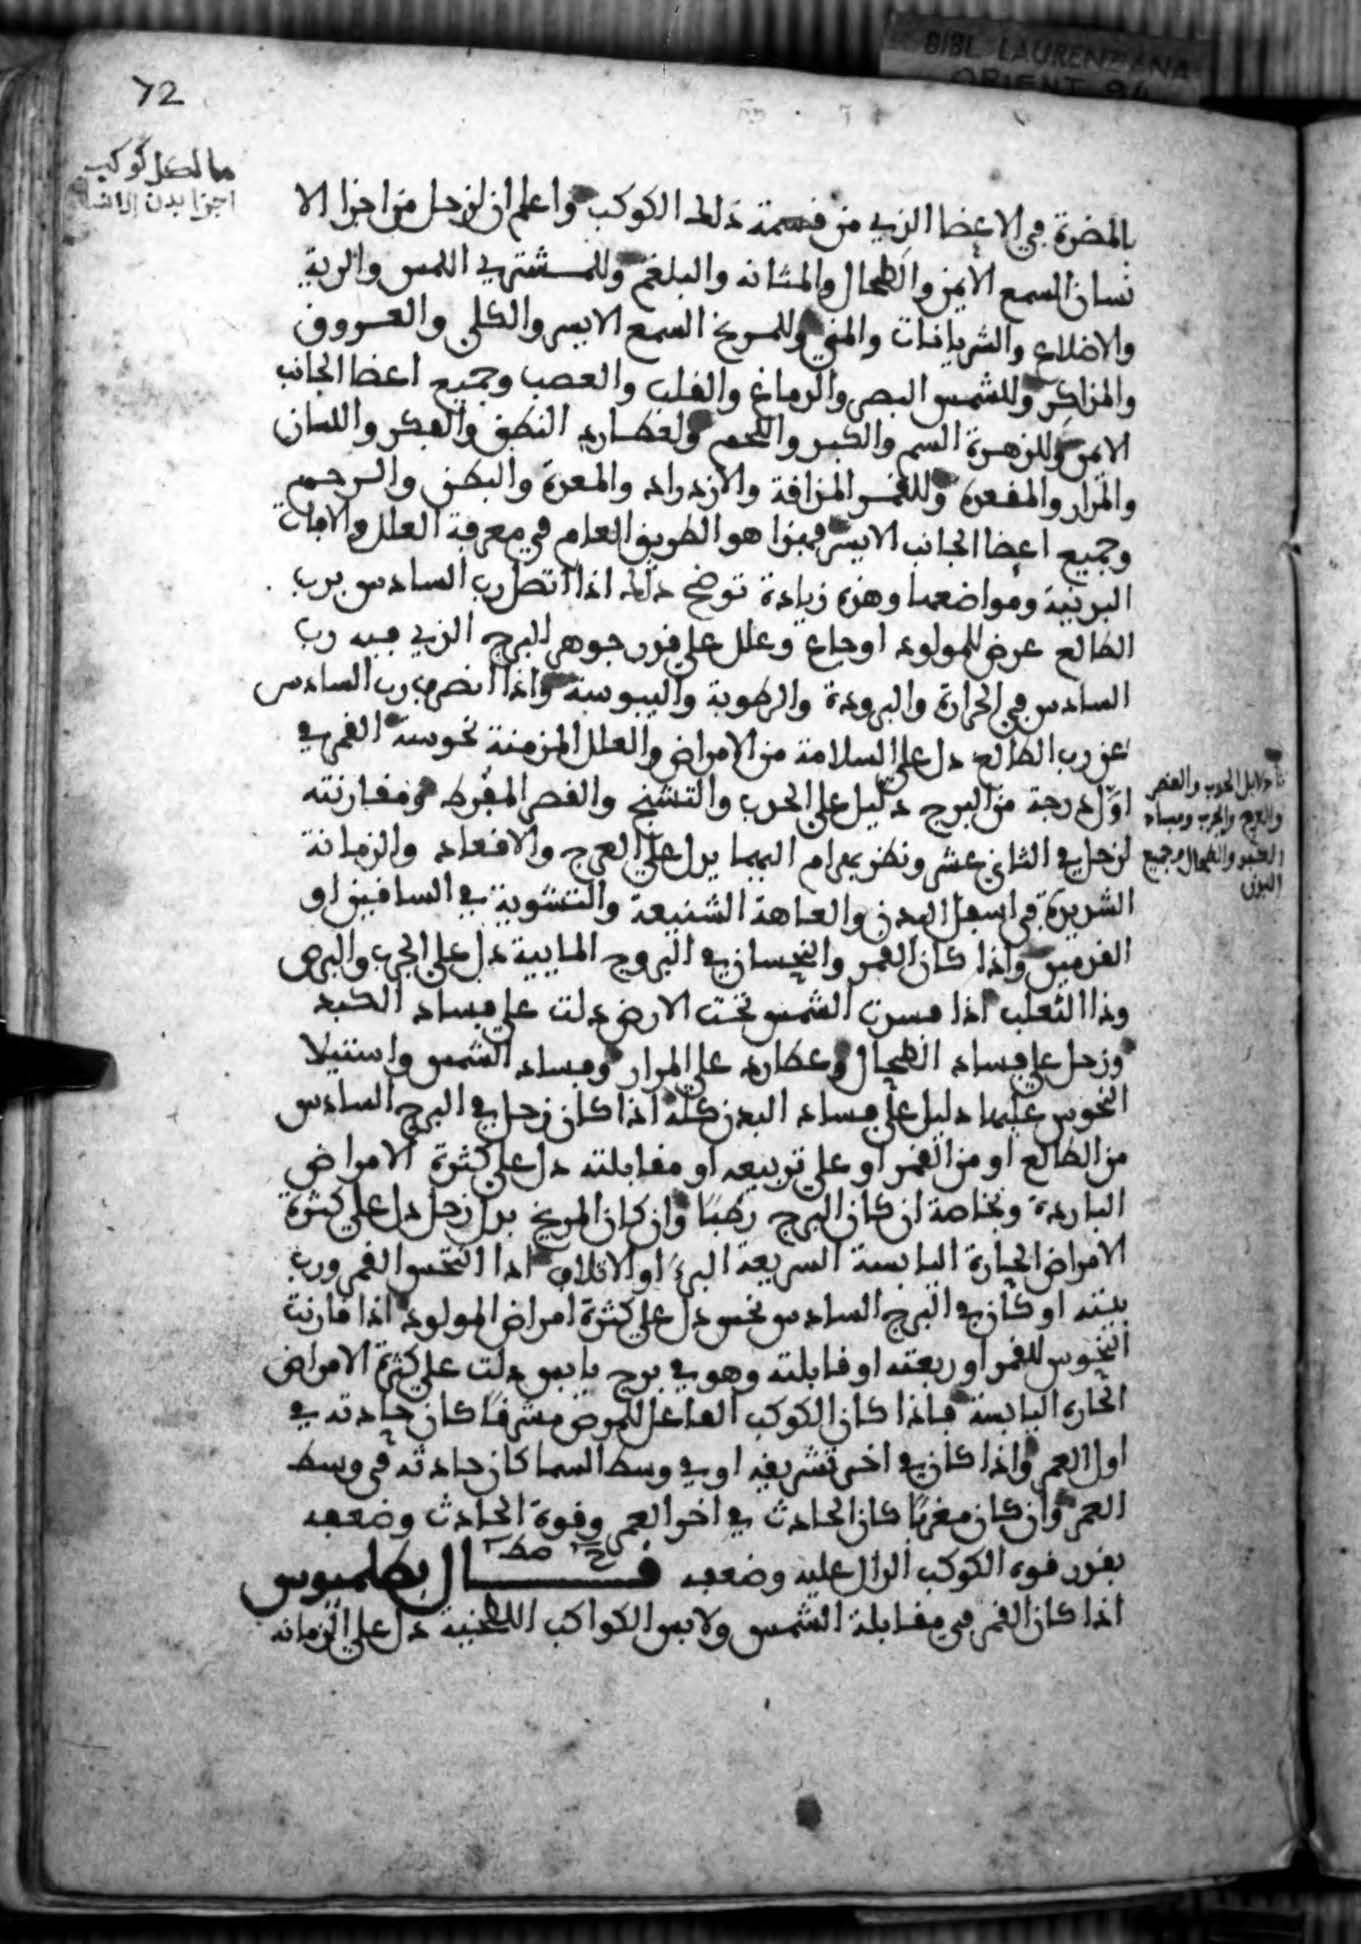 BIBL. LAURENZIANA
ORIENT. 94
72
ما لكل كوكب
اجزا بدن الانسان
بالمضرة في الاعضا الذي من قسمة ذلك الكوكب واعلم ان لزحل من اجزا الا
نسان السمع الايمن والطحال والمثانه والبلغم وللمشتري اللمس والرية
والاضلاع والشريانات والمني وللمريخ السمع الايسر والكلى والعروق
والمذاكر وللشمس البصر والدماغ والقلب والعصب وجميع اعضا الجانب
الايمن وللزهرة الشم والكبد واللحم ولعطارد النطق والفكر واللسان
والمرار والمقعدة وللقمر المذاقة والازدراد والمعدة والبطن والرحم
وجميع اعضا الجانب الايسر فهذا هو الطريق العام في معرفة العلل والافات
البدنية ومواضعها وهذه زيادة توضح ذلك اذا اتصل رب السادس برب
الطالع عرض للمولود اوجاع وعلل على قدر جوهر البرج الذي فيه رب
السادس في الحرارة والبرودة والرطوبة واليبوسة واذا انصرف رب السادس
عن رب الطالع دل على السلامة من الامراض والعلل المزمنة نحوسة القمر في
اول درجة من البرج دليل على الحدب والتشنج والقصر المفرط ومقارنته
لزحل في الثاني عشر ونظر بهرام اليهما يدل على العرج والاقعاد والزمانة
الشديدة في اسفل البدن والعاهة الشنيعة والتشويه في الساقين او
القدمين واذا كان القمر والنحسان في البروج المايية دل على الجرب والبرص
وذا الثعلب اذا فسدت الشمس تحت الارض دلت على فساد الكبد
وزحل على فساد الطحال وعطارد على المرار وفساد الشمس واستيلا
النحوس عليها دليل على فساد البدن كله اذا كان زحل في البرج السادس
من الطالع او من القمر او على تربيعه او مقابلته دل على كثرة الامراض
الباردة وبخاصة ان كان البرج رطبًا وان كان المريخ بدل زحل دل على كثرة
الامراض الحارة اليابسة السريعة البرء او الاتلاف اذا انتحس القمر ورب
بيته او كان في البرج السادس نحس دل على كثرة امراض المولود اذا قارنت
النحوس للقمر او ربعته او قابلته وهو في برج يابس دلت على كثرة الامراض
الحارة اليابسة فاذا كان الكوكب الفاعل للمرض مشرقًا كان حادثه في
اول العمر واذا كان في اخر تشريقه او في وسط السما كان حادثه في وسط
العمر وان كان مغربًا كان الحادث في اخر العمر وقوة الحادث وضعفه
بقدر قوة الكوكب الدال عليه وضعفه قال بطلميوس
اذا كان القمر في مقابلة الشمس ولابس الكواكب اللطخية دل على الزمانه
دلايل الحدب والقصر
والعرج والجرب وفساد
الكبد والطحال وجميع
البدن